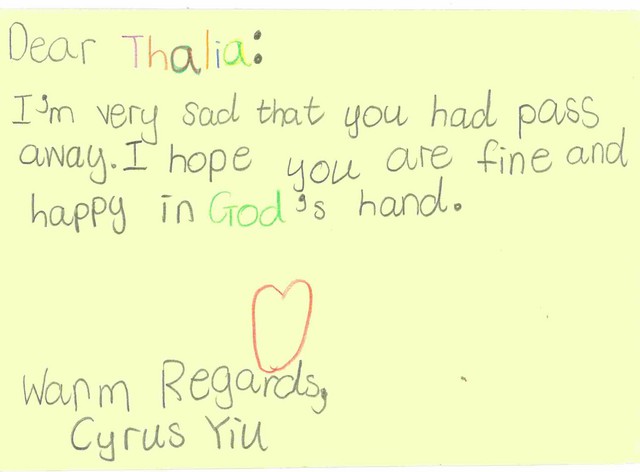 Dear Thalia:
I'm very sad that you had pass
away. I hope you are fine and
happy in God's hand.
Warm Regards,
Cyrus Yiu